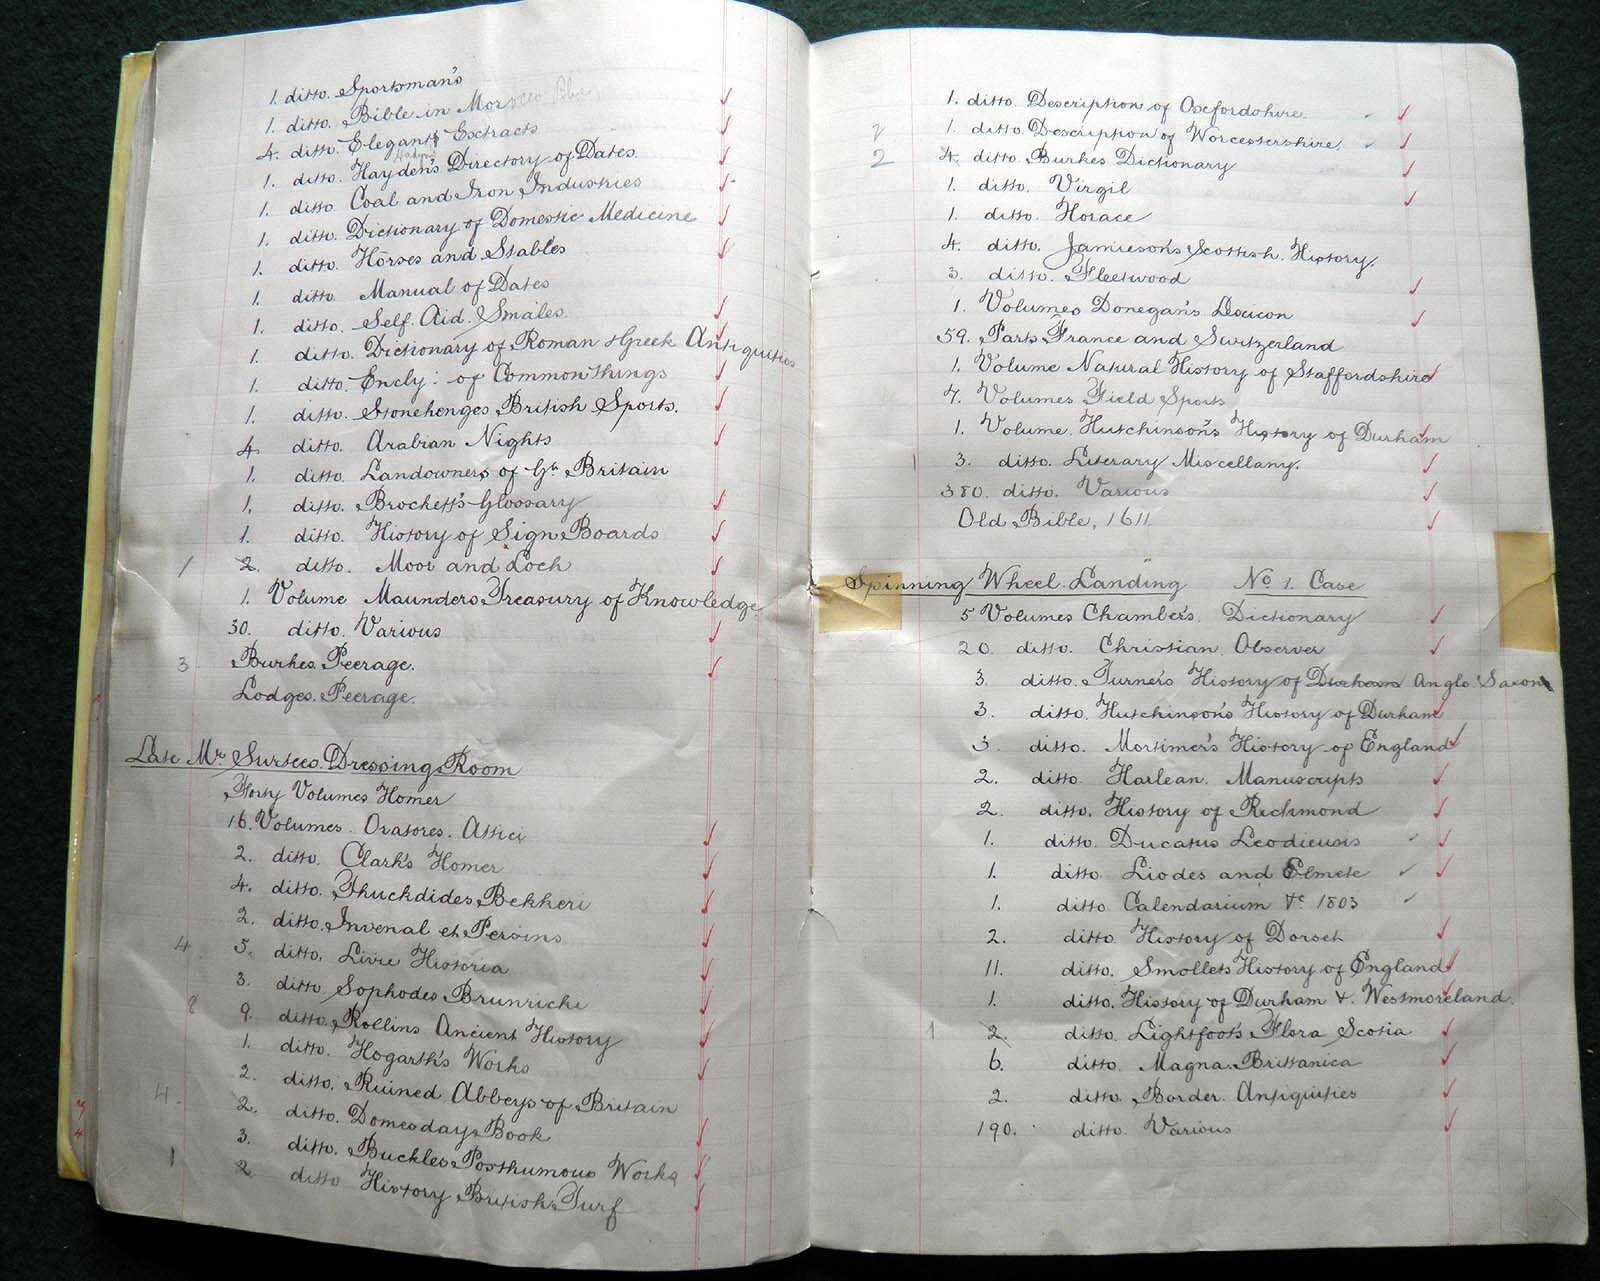 1. ditto. Sportsman's
1. ditto. Bible in Morocco
4. ditto. Elegant Extracts
1. ditto. Hayden's Directory of Dates
1. ditto Coal and Iron Industries
1. ditto. Dictionary of Domestic Medicine
1. ditto. Horses and Stables
1. ditto. Manual of Dates
1. ditto. Self. Aid. Smiles.
1. ditto. Dictionary of Roman & Greek Antiquities
1. ditto. Encly: of Common things
1. ditto. Stonehenges British Sports.
4. ditto. Arabian Nights
1. ditto. Landowners of Gt. Britain
1. ditto. Brockett's Glossary
1. ditto. History of Sign Boards
1 2. ditto. Moor and Loch
1. Volume Maunders Treasury of Knowledge
30. ditto. Various
3 Burkes Peerage.
Lodges. Peerage.
Late Mr Surtees. Dressing Room
Forty Volumes Homer
16. Volumes. Oratores. Attici
2. ditto. Clark's Homer
4. ditto. Thuckdides Bekkeri
2. ditto. Juvenal et Persius
4 5. ditto. Livie Historia
3. ditto. Sophodes Brunricki
8 9. ditto. Rollins Ancient History
1. ditto. Hogarth's Works
2. ditto. Ruined Abbeys of Britain
4. 2. ditto. Domesday Book
3. ditto. Buckles Posthumous Works
1 2. ditto History British Turf
1. ditto. Description of Oxfordshire.
2 1. ditto. Description of Worcestershire.
2 4. ditto. Burkes Dictionary
1. ditto. Virgil
1. ditto. Horace
4. ditto. Jamieson's Scottish. History.
3. ditto. Fleetwood
1. Volumes Donegan's Lexicon
59. Parts France and Switzerland
1. Volume Natural History of Staffordshire
7. Volumes Field Sports
1. Volume. Hutchinson's History of Durham
1 3. ditto. Literary Miscellany.
380. ditto. Various
Old Bible, 1611.
Spinning Wheel Landing No 1. Case
5 Volumes Chamber's Dictionary
20. ditto. Christian Observer
3. ditto. Turner's History of Durham Anglo Saxon
3. ditto. Hutchinson's History of Durham
3. ditto. Mortimer's History of England
2. ditto. Harlean. Manuscripts
2. ditto. History of Richmond
1. ditto. Ducatus Leodieusis
1. ditto. Liodes and Elmete
1. ditto. Calendarium &c 1803
2. ditto. History of Dorset
11. ditto. Smollets History of England
1. ditto. History of Durham & Westmoreland.
1 2. ditto. Lightfoot's Flora Scotia
6. ditto. Magna Brittanica
2. ditto. Border Antiquities
190. ditto. Various